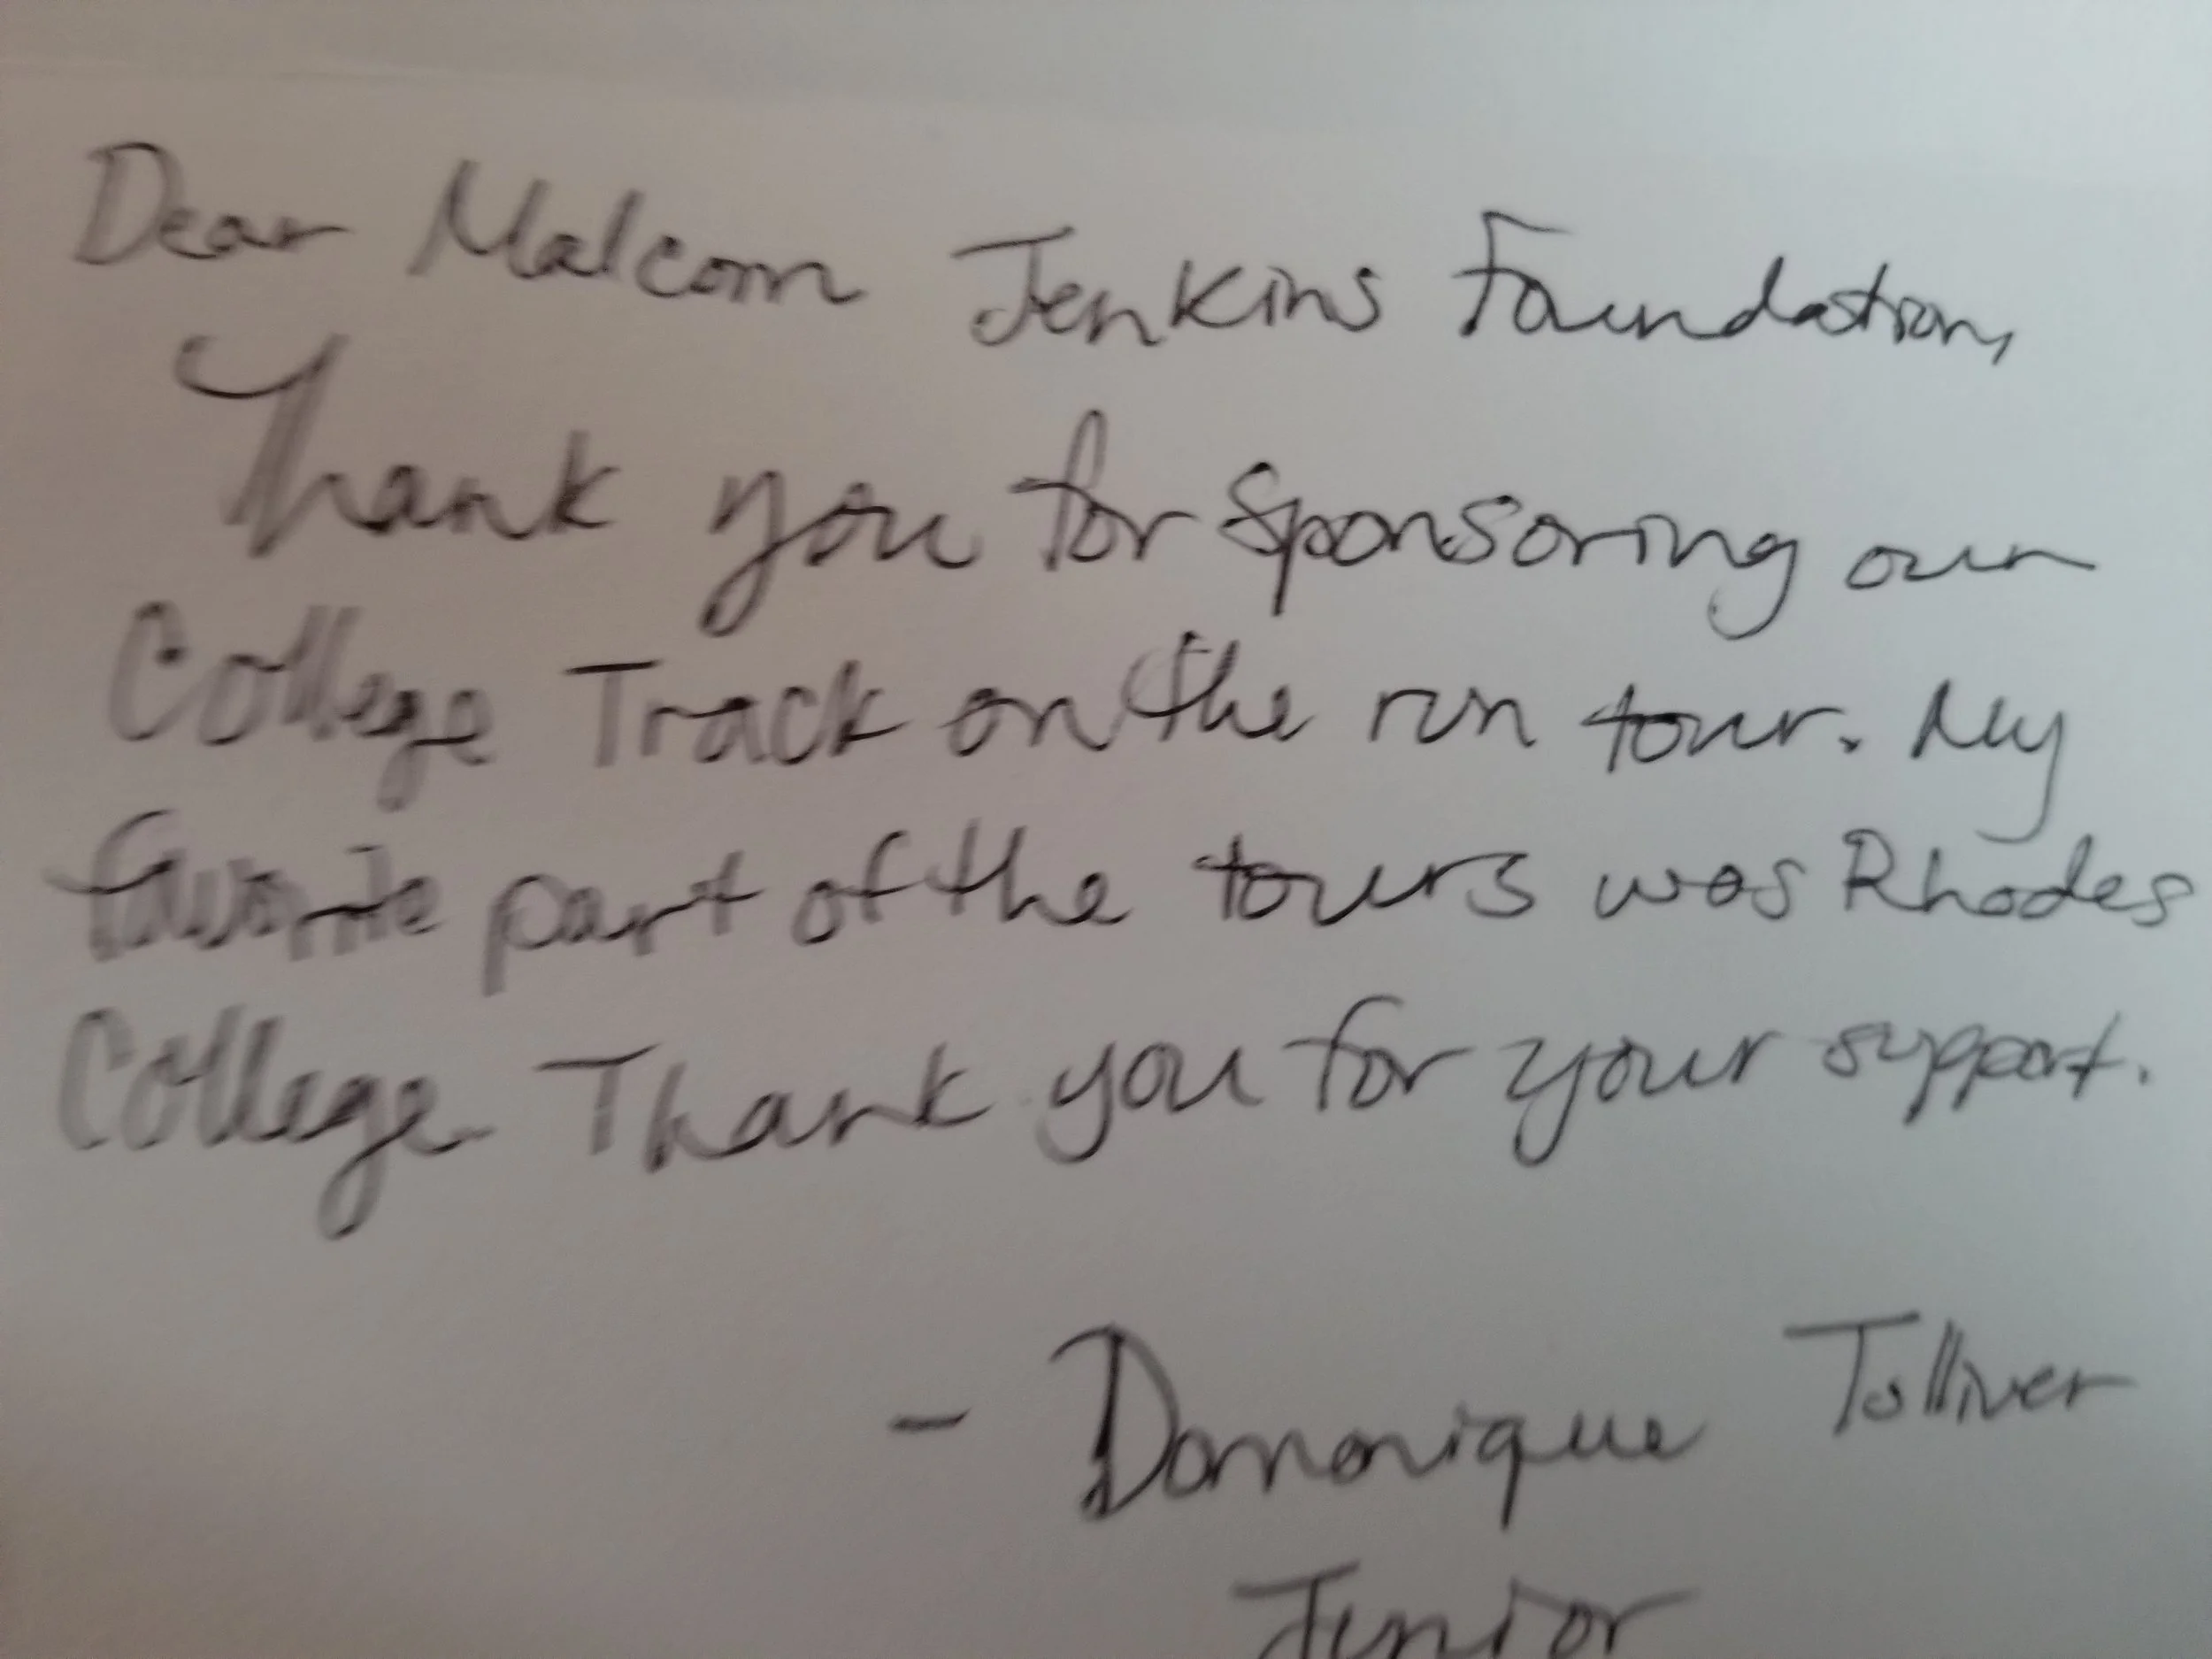 Dear Malcom Jenkins Foundation,
Thank you for sponsoring our
College Track on the run tour. My
favorite part of the tours was Rhodes
College Thank you for your support.
- Domonique Tolliver
Junior